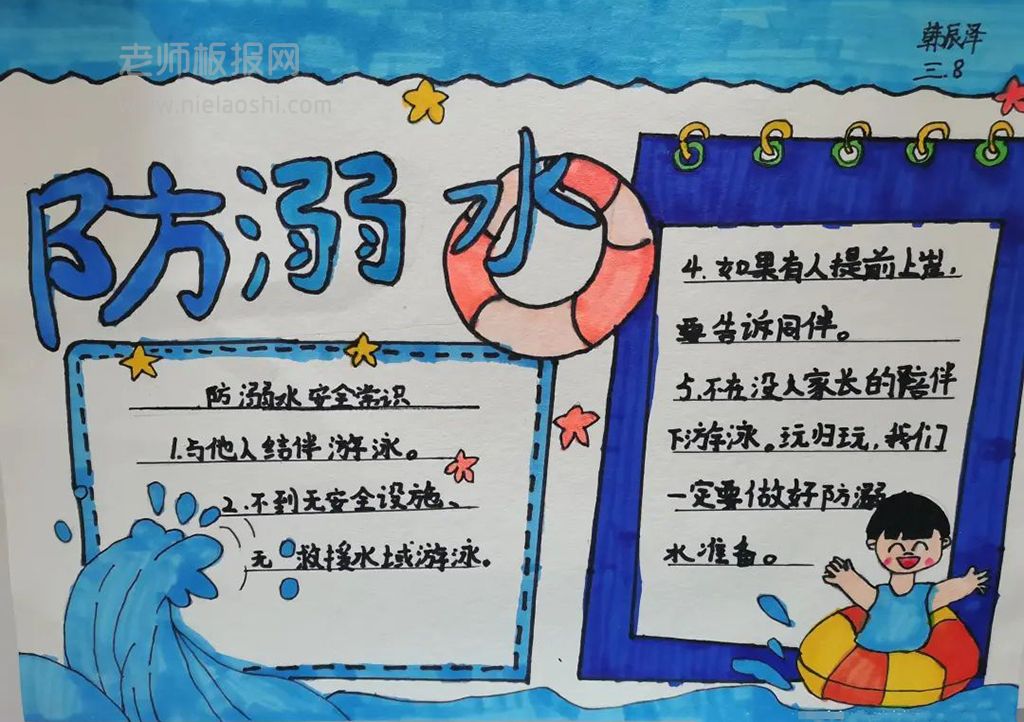 老师板报网
www.nielaoshi.com
韩辰泽
三.8
防溺水
防溺水安全常识
1.与他人结伴游泳。
2.不到无安全设施、
无救援水域游泳。
4.如果有人提前上岸,
要告诉同伴。
5.不在没人家长的陪伴
下游泳。玩归玩,我们
一定要做好防溺
水准备。